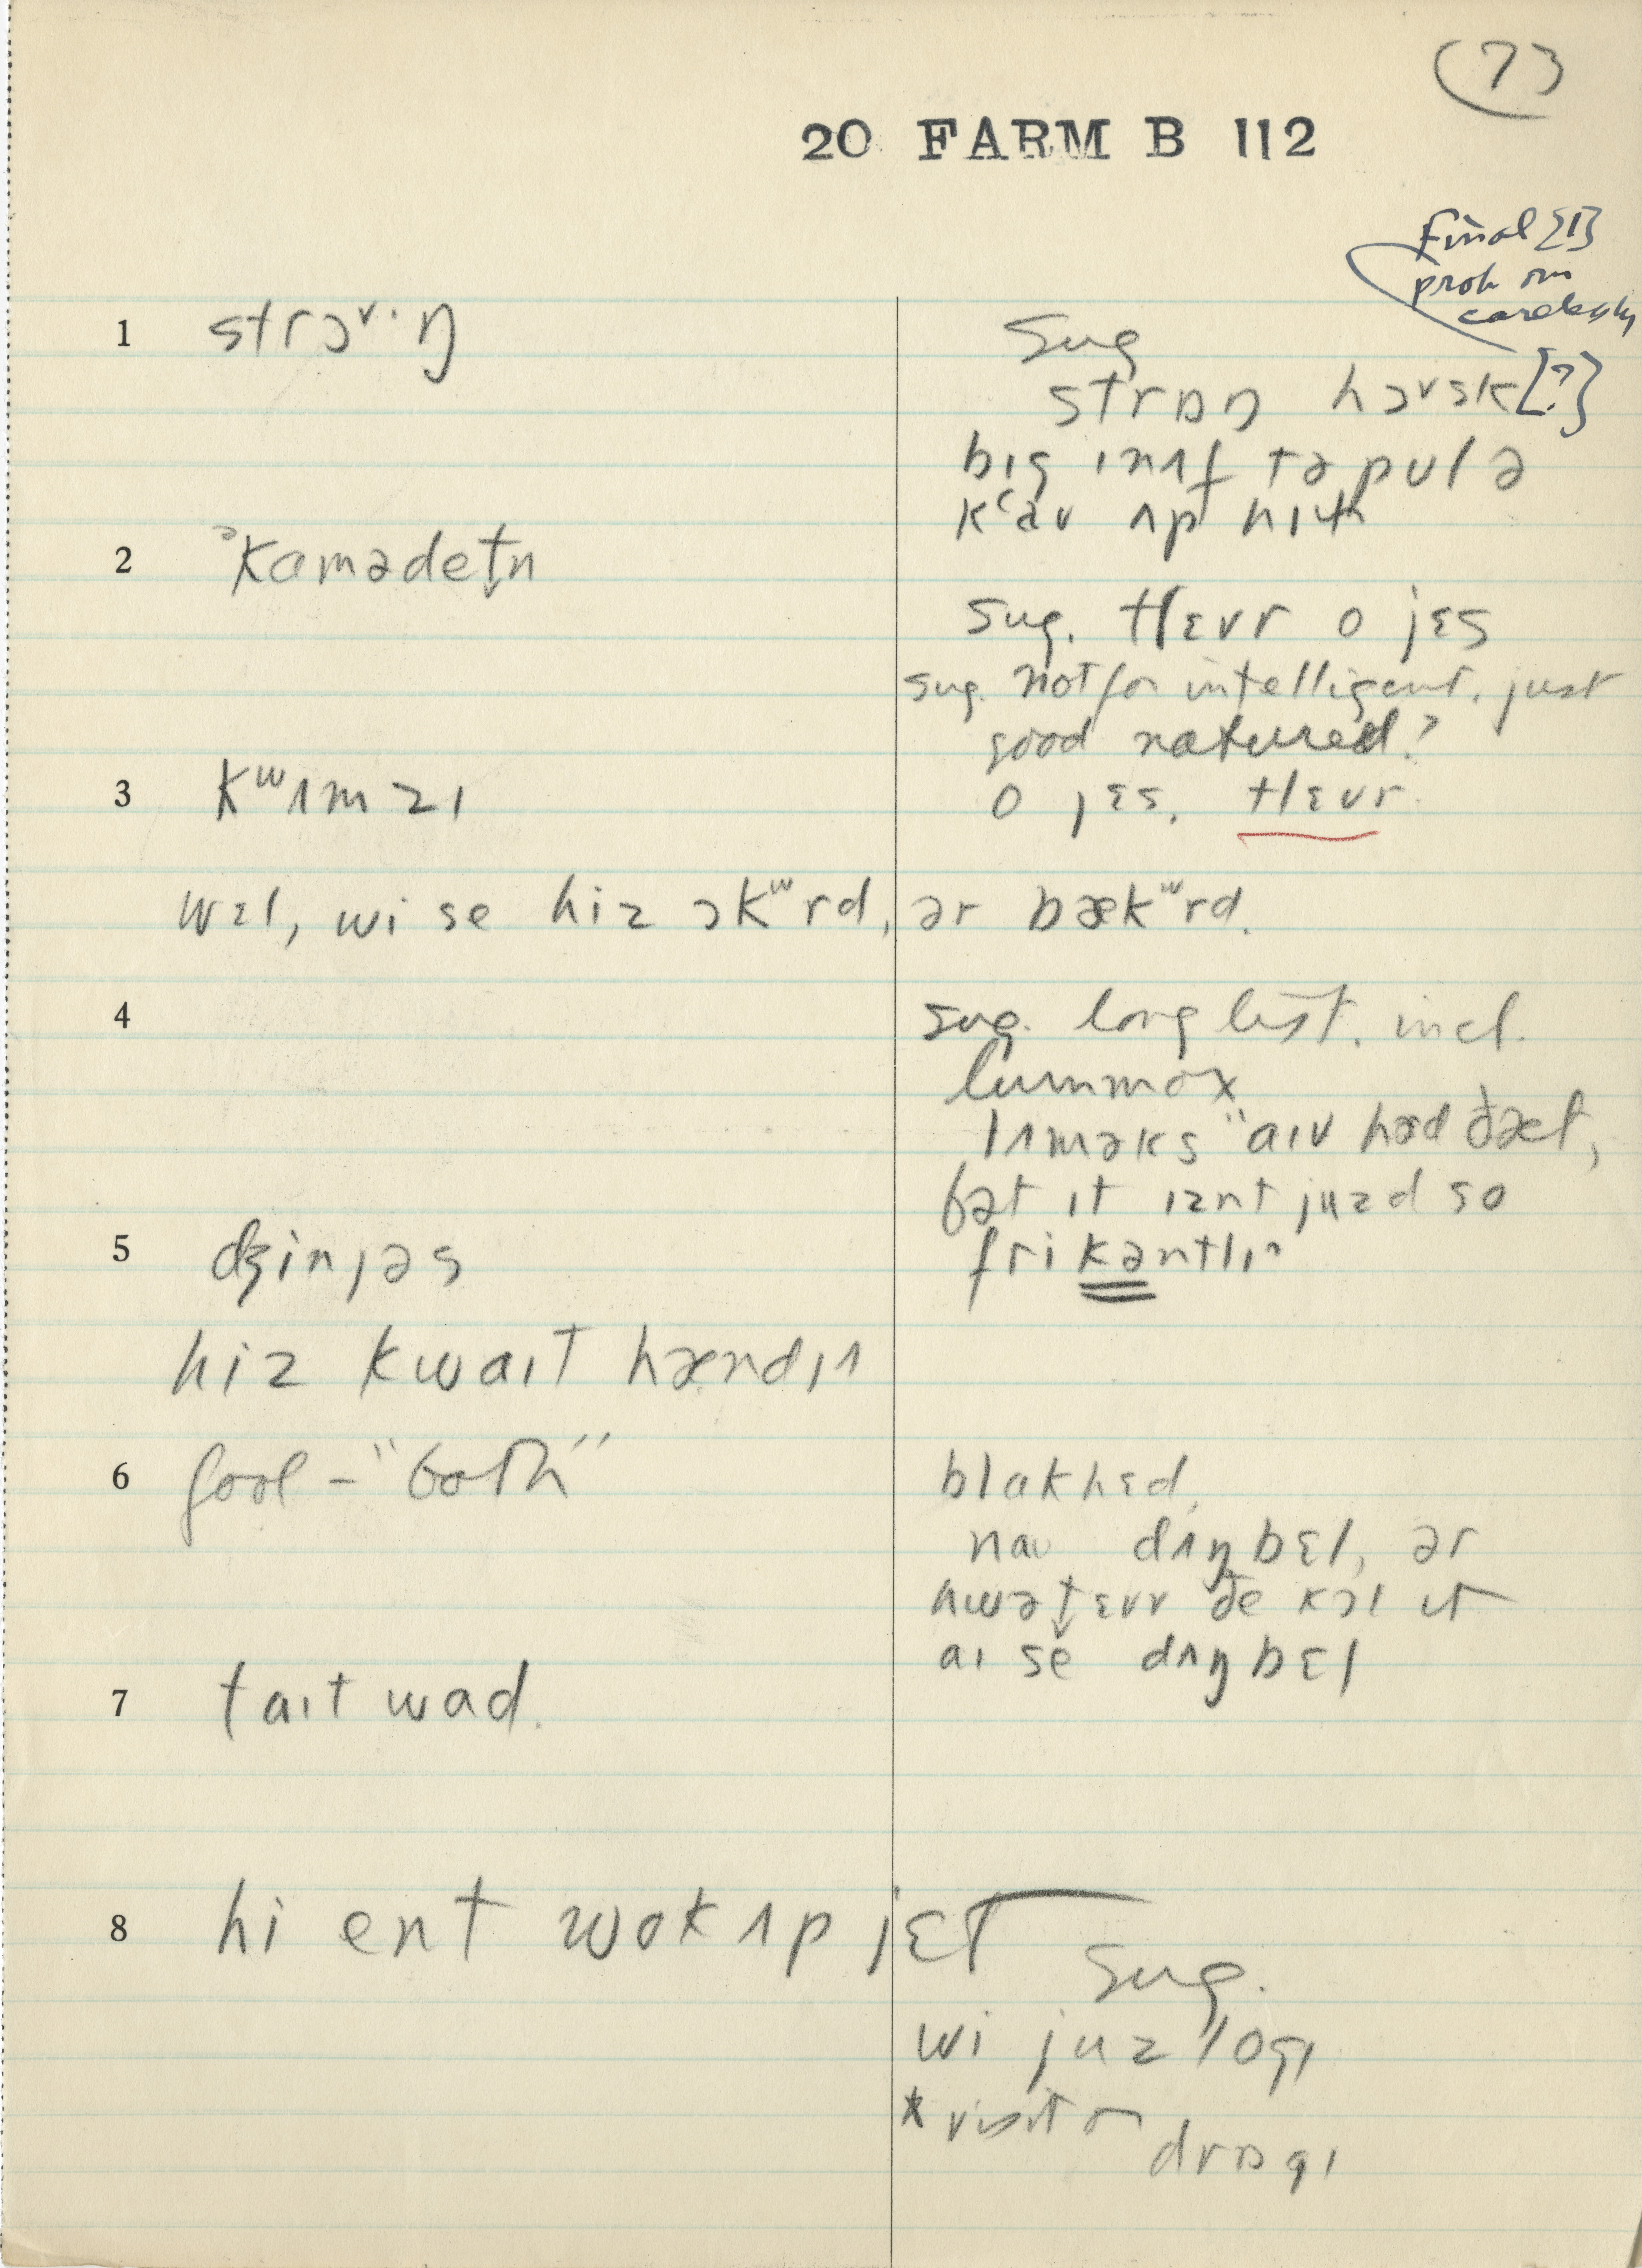 73
20 FARM B 112
Final [I]
prob om
carelessly
1 strɔᵛ·ŋ
Sug
strɒŋ hɔvsk [?]
bɪg ɪnʌf tə pʊl ə
kʽaʊ ʌp hɪɫ
2 ᵊkɑmədet̬n
sug. tlɛvr o jɛs
sug. not for intelligent. just
good natured?
3 kʷʌmzɪ
o jɛs. tlɛvr.
wɛl, wi se hiz ɔkʷrd, ər bækʷrd.
4 sug. long list. incl.
lummox
lʌməks "aɪv həd ðæt,
bət ɪt ɪznt juzd so
frikəntlɪ"
5 dʒinjəs
hiz kwaɪt hændɪ
6 fool – "both"
blɑkhɛd,
naʊ dʌŋbɛl, ər
hwət̬ɛvr ðe kɔl ɪt
aɪ se dʌŋbɛl
7 taɪtwɑd.
8 hi ent wok ʌp jɛt
Sug.
wi juz logɪ
*visit or
drɒgɪ